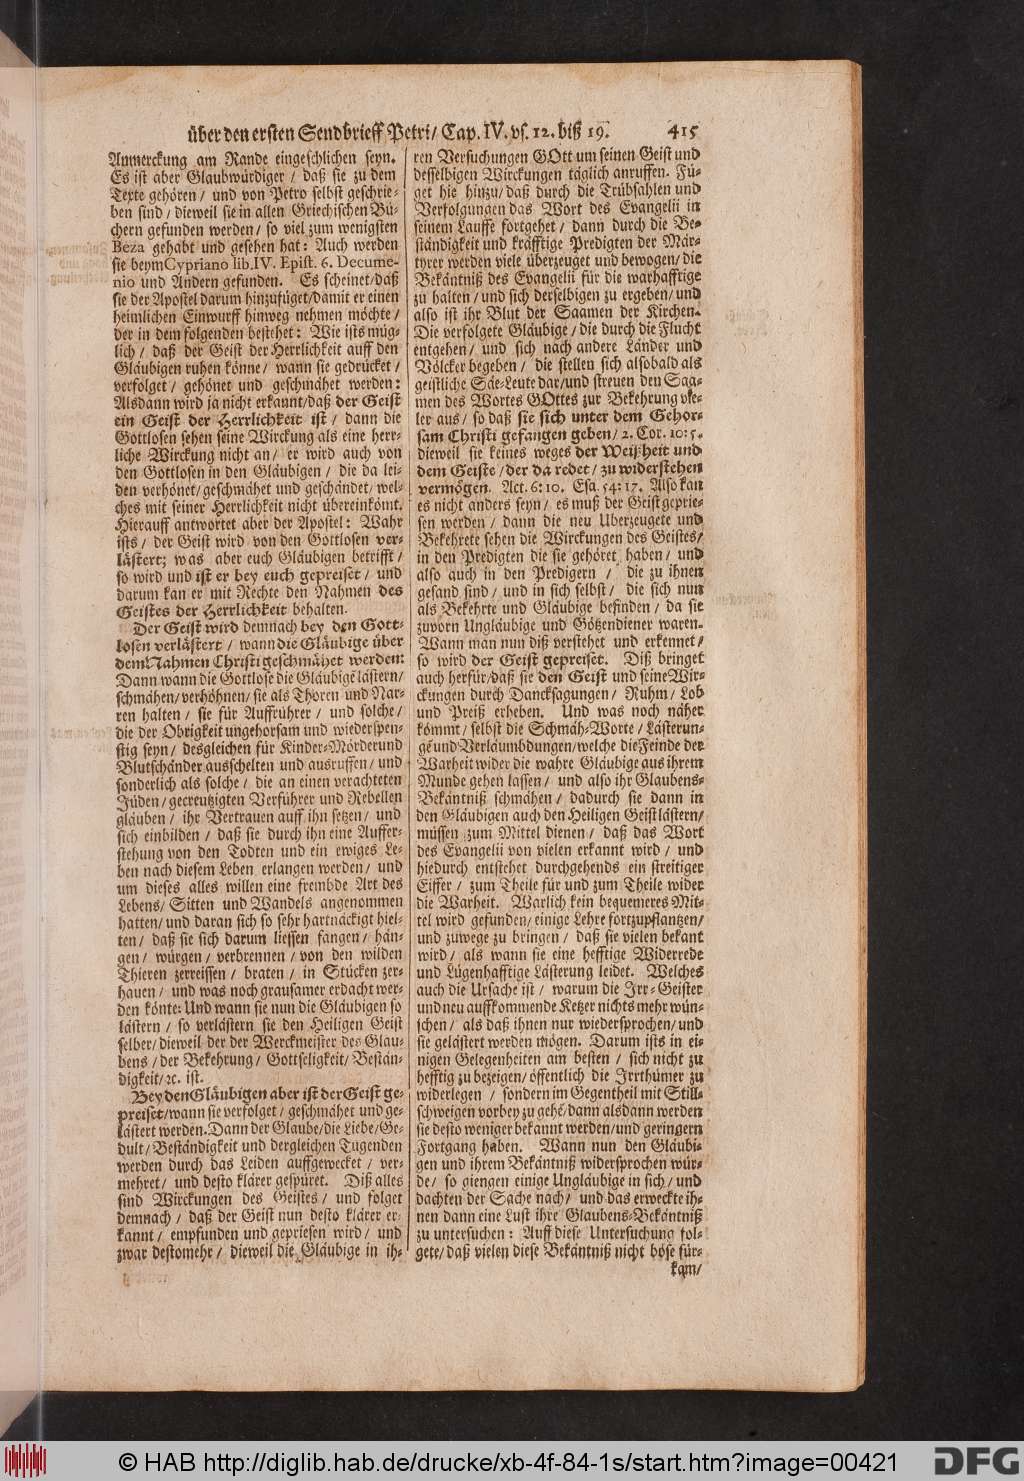 über den ersten Sendbrieff Petri/ Cap. IV. vs. 12. biß 19. 415
Anmerckung am Rande eingeschlichen seyn.
Es ist aber Glaubwürdiger / daß sie zu dem
Texte gehören / und von Petro selbst geschrie-
ben sind / dieweil sie in allen Griechischen Bü-
chern gefunden werden / so viel zum wenigsten
Beza gehabt und gesehen hat: Auch werden
sie beym Cypriano lib. IV. Epist. 6. Decume-
nio und Andern gefunden. Es scheinet/daß
sie der Apostel darum hinzufüget/damit er einen
heimlichen Einwurff hinweg nehmen möchte /
der in dem folgenden bestehet: Wie ists müg-
lich / daß der Geist der Herrlichkeit auff den
Gläubigen ruhen könne / wann sie gedrücket /
verfolget / gehönet und geschmähet werden:
Alsdann wird ja nicht erkannt/daß der Geist
ein Geist der Herrlichkeit ist / dann die
Gottlosen sehen seine Wirckung als eine herr-
liche Wirckung nicht an / er wird auch von
den Gottlosen in den Gläubigen / die da lei-
den verhönet/geschmähet und geschändet/ wel-
ches mit seiner Herrlichkeit nicht übereinkömt.
Hierauff antwortet aber der Apostel: Wahr
ists / der Geist wird von den Gottlosen ver-
lästert; was aber euch Gläubigen betrifft /
so wird und ist er bey euch gepreiset / und
darum kan er mit Rechte den Nahmen des
Geistes der Herrlichkeit behalten.
Der Geist wird demnach bey den Gott-
losen verlästert / wann die Gläubige über
dem Nahmen Christi geschmähet werden:
Dann wann die Gottlose die Gläubige lästern/
schmähen/verhöhnen/ sie als Thoren und Nar-
ren halten / sie für Auffrührer / und solche /
die der Obrigkeit ungehorsam und wiederspen-
stig seyn / desgleichen für Kinder-Mörder und
Blutschänder ausschelten und ausruffen / und
sonderlich als solche / die an einen verachteten
Jüden / gecreutzigten Verführer und Rebellen
gläuben / ihr Vertrauen auff ihn setzen / und
sich einbilden / daß sie durch ihn eine Auffer-
stehung von den Todten und ein ewiges Le-
ben nach diesem Leben erlangen werden / und
um dieses alles willen eine frembde Art des
Lebens/ Sitten und Wandels angenommen
hatten/ und daran sich so sehr hartnäckigt hiel-
ten / daß sie sich darum liessen fangen / hän-
gen / würgen / verbrennen / von den wilden
Thieren zerreissen / braten / in Stücken zer-
hauen / und was noch grausamer erdacht wer-
den könte: Und wann sie nun die Gläubigen so
lästern / so verlästern sie den Heiligen Geist
selber/ dieweil der der Werckmeister des Glau-
bens / der Bekehrung / Gottseligkeit/ Bestän-
digkeit/ ꝛc. ist.
Bey den Gläubigen aber ist der Geist ge-
preiset/wann sie verfolget / geschmähet und ge-
lästert werden. Dann der Glaube/die Liebe/Ge-
dult/ Beständigkeit und dergleichen Tugenden
werden durch das Leiden auffgewecket / ver-
mehret / und desto klärer gespüret. Diß alles
sind Wirckungen des Geistes / und folget
demnach / daß der Geist nun desto klärer er-
kannt / empfunden und gepriesen wird / und
zwar destomehr / dieweil die Gläubige in ih-
ren Versuchungen GOtt um seinen Geist und
desselbigen Wirckungen täglich anruffen. Fü-
get hie hinzu/daß durch die Trübsahlen und
Verfolgungen das Wort des Evangelii in
seinem Lauffe fortgehet / dann durch die Be-
ständigkeit und kräfftige Predigten der Mär-
tyrer werden viele überzeuget und bewogen/ die
Bekäntniß des Evangelii für die warhafftige
zu halten / und sich derselbigen zu ergeben / und
also ist ihr Blut der Saamen der Kirchen.
Die verfolgete Gläubige / die durch die Flucht
entgehen / und sich nach andere Länder und
Völcker begeben / die stellen sich alsobald als
geistliche Säe-Leute dar/und streuen den Saa-
men des Wortes GOttes zur Bekehrung vie-
ler aus / so daß sie sich unter dem Gehor-
sam Christi gefangen geben / 2. Cor. 10: 5.
dieweil sie keines weges der Weißheit und
dem Geiste / der da redet / zu widerstehen
vermögen. Act. 6: 10. Esa. 54: 17. Also kan
es nicht anders seyn / es muß der Geist geprie-
sen werden / dann die neu Uberzeugete und
Bekehrete sehen die Wirckungen des Geistes/
in den Predigten die sie gehöret haben / und
also auch in den Predigern / die zu ihnen
gesand sind / und in sich selbst / die sich nun
als Bekehrte und Gläubige befinden / da sie
zuvorn Ungläubige und Götzendiener waren.
Wann man nun diß verstehet und erkennet /
so wird der Geist gepreiset. Diß bringet
auch herfür/daß sie den Geist und seine Wir-
ckungen durch Dancksagungen / Ruhm / Lob
und Preiß erheben. Und was noch näher
kömmt / selbst die Schmäh-Worte / Lästerun-
gē und Verläumbdungen/welche die Feinde der
Warheit wider die wahre Gläubige aus ihrem
Munde gehen lassen / und also ihr Glaubens-
Bekäntniß schmähen / dadurch sie dann in
den Gläubigen auch den Heiligen Geist lästern/
müssen zum Mittel dienen / daß das Wort
des Evangelii von vielen erkannt wird / und
hiedurch entstehet durchgehends ein streitiger
Eiffer / zum Theile für und zum Theile wider
die Warheit. Warlich kein bequemeres Mit-
tel wird gefunden/ einige Lehre fortzupflantzen/
und zuwege zu bringen / daß sie vielen bekant
wird / als wann sie eine hefftige Widerrede
und Lügenhafftige Lästerung leidet. Welches
auch die Ursache ist / warum die Irr-Geister
und neu auffkommende Ketzer nichts mehr wün-
schen / als daß ihnen nur wiedersprochen / und
sie gelästert werden mögen. Darum ists in ei-
nigen Gelegenheiten am besten / sich nicht zu
hefftig zu bezeigen / öffentlich die Irrthümer zu
widerlegen / sondern im Gegentheil mit Still-
schweigen vorbey zu gehē/ dann alsdann werden
sie desto weniger bekannt werden/und geringern
Fortgang haben. Wann nun den Gläubi-
gen und ihrem Bekäntniß widersprochen wür-
de / so giengen einige Ungläubige in sich / und
dachten der Sache nach / und das erweckte ih-
nen dann eine Lust ihre Glaubens-Bekäntniß
zu untersuchen: Auff diese Untersuchung fol-
gete/ daß vielen diese Bekäntniß nicht böse für-
kam/
© HAB http://diglib.hab.de/drucke/xb-4f-84-1s/start.htm?image=00421
DFG